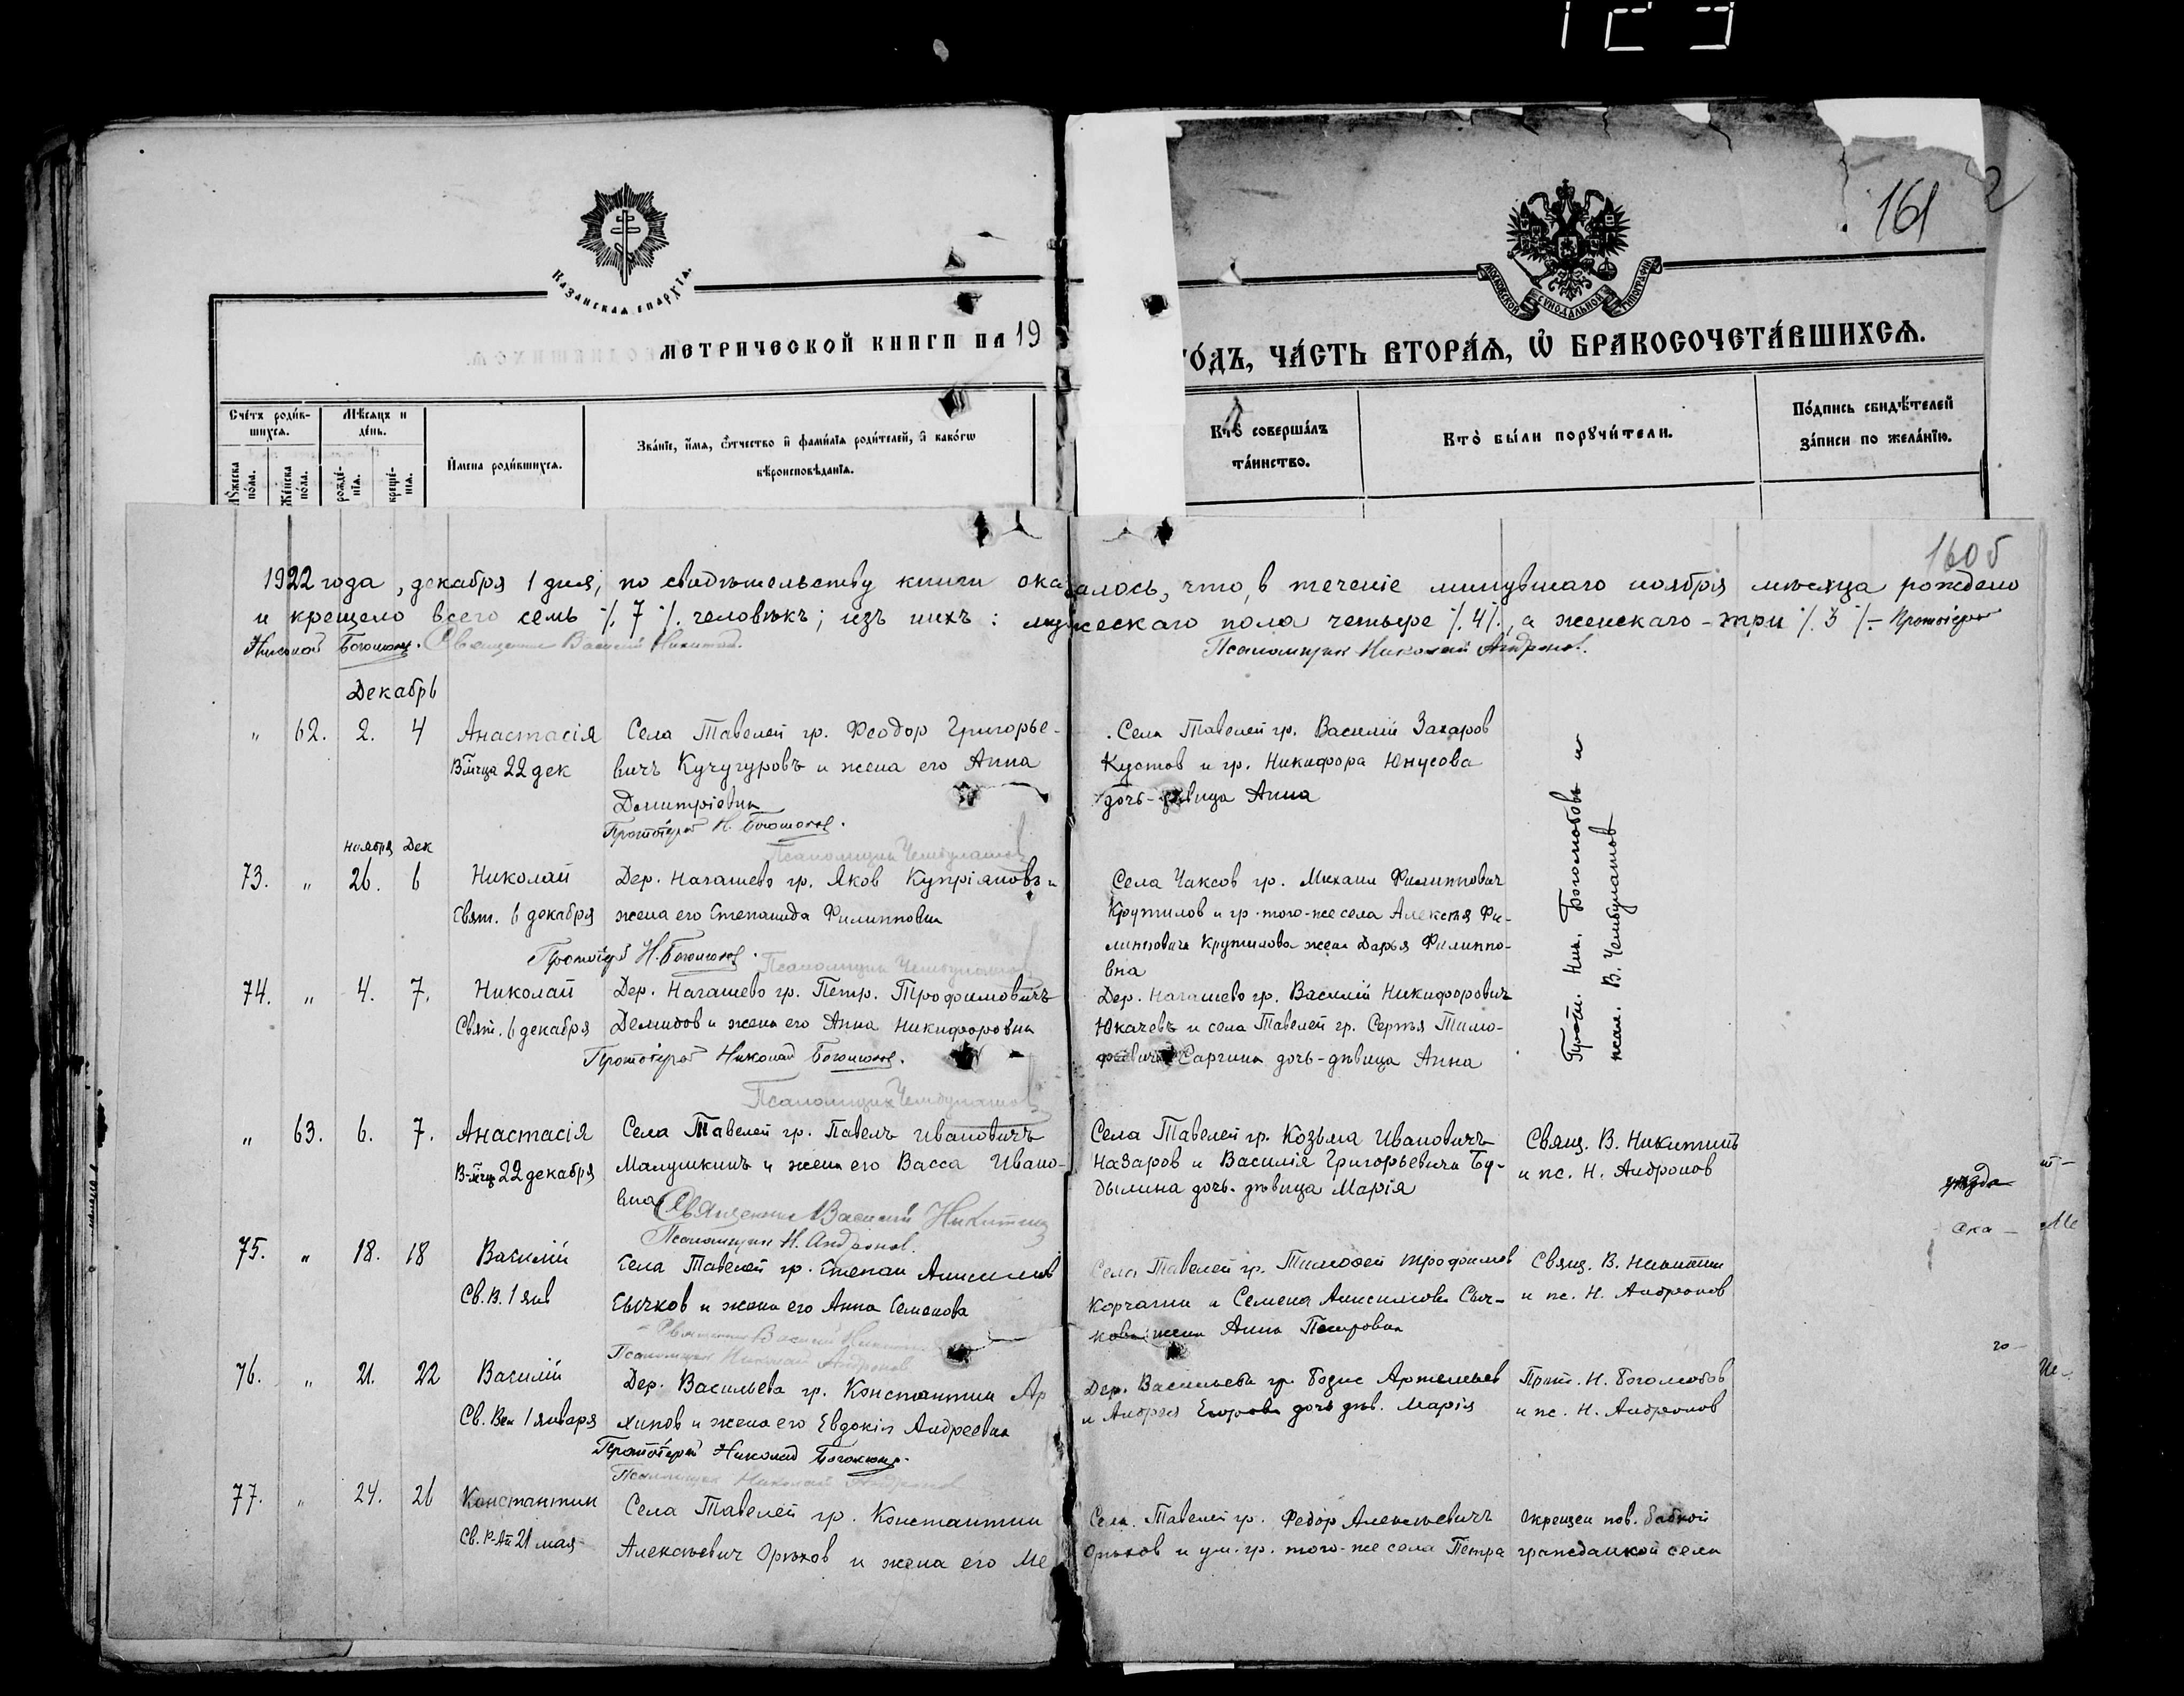 161
2
Казанская епархїа.
Московской Сѵнодальной Типографїи
МЕТРИЧЕСКОЙ КНИГИ НА 19
ГО́ДЪ, ЧА́СТЬ ВТОРА́Я, Ѽ БРАКОСОЧЕТА́ВШИХСЯ.
Сче́тъ роди́в-
шихся.
Мѣ́сяцъ и
де́нь.
Мꙋ́жеска
по́ла.
Же́нска
по́ла.
рожде́-
нїя.
креще́-
нїя.
И҆мена роди́вшихся.
Зва́нїе, и҆́мя, ѻ҆́тчество и҆ фами́лїя роди́телей, и҆ како́гѡ
вѣроисповѣ́данїя.
Кто̀ соверша́лъ
та́инство.
Кто̀ бы́ли порꙋчи́тели.
По́дпись свидѣ́телей
за́писи по жела́нїю.
160б
1922 года, декабря 1 дня, по свидѣтельству книги оказалось, что, в теченіе минувшаго ноября мѣсяца рождено
и крещено всего семь ⁒ 7 ⁒ человѣкъ; изъ нихъ: мужескаго пола четыре ⁒ 4 ⁒, а женскаго - три ⁒ 3 ⁒ - Протоіерей
Николай Боголюбов. Священник Василий Никитин. Псаломщик Николай Андронов.
Декабрь
" 62. 2. 4 Анастасія Села Тавелей гр. Феодор Григорье-
В-мчца 22 дек вичъ Кучугуровъ и жена его Анна
Димитріевна
Протоіерей Н. Боголюбов.
Псаломщик Чембулатов
. Села Тавелей гр. Василій Захаров
Кустов и гр. Никифора Юнусова
дочь-дѣвица Анна
Прот. Ник. Боголюбовъ и
псал. В. Чембулатов
ноября Дек
73. " 26. 6 Николай Дер. Нагашево гр. Яков Купріяновъ и
Свят. 6 декабря жена его Степанида Филипповна
Протоіерей Н. Боголюбов.
Псаломщик Чембулатов
Села Чаксов гр. Михаил Филиппович
Крутилов и гр. того-же села Алексѣя Фи-
липповича Крутилова жена Дарья Филиппо-
вна
74. " 4. 7. Николай Дер. Нагашево гр. Петр. Трофимовичъ
Свят. 6 декабря Демидов и жена его Анна Никифоровна
Протоіерей Николай Боголюбов.
Псаломщик Чембулатов
Дер. Нагашево гр. Василій Никифорович
Юкачевъ и села Тавелей гр. Сергѣя Тимо-
феевича Саргина дочь-дѣвица Анна
" 63. 6. 7. Анастасія Села Тавелей гр. Павелъ Ивановичъ
В-мчц 22 декабря Малушкинъ и жена его Васса Ивано-
вна Священник Василий Никитин
Псаломщик Н. Андронов.
Села Тавелей гр. Козьма Ивановичъ
Назаров и Василія Григорьевича Бу-
дылина дочь-дѣвица Марія
Свящ. В. Никитинъ
и пс. Н. Андронов
75. " 18. 18 Василій Села Тавелей гр. Степан Анисимов
Св. В. 1 янв Сычков и жена его Анна Семенова
Священник Василий Никитин
Псаломщик Николай Андронов
Села Тавелей гр. Тимофей Трофимов
Корчагин и Семена Анисимова Сыч-
кова жена Анна Петровна
Свящ. В. Никитин
и пс. Н. Андронов
76. " 21. 22 Василій Дер. Васильева гр. Константин Ар
Св. Вел 1 января хипов и жена его Евдокія Андреевна
Протоіерей Николай Боголюбов.
Псаломщик Николай Андронов
Дер. Васильева гр. Борис Артемьев
и Андрея Егорова дочь дѣв. Марія
Прот. Н. Боголюбов
и пс. Н. Андронов
77. " 24. 26 Константин Села Тавелей гр. Константин
Св. Р-Ап 21 мая Алексѣевич Орѣхов и жена его Ме
Села. Тавелей гр. Федор Алексѣевичъ
Орѣхов и ум. гр. того-же села Петра
Окрещен пов. бабкой
гражданкой села
уѣзда
ска -
го -